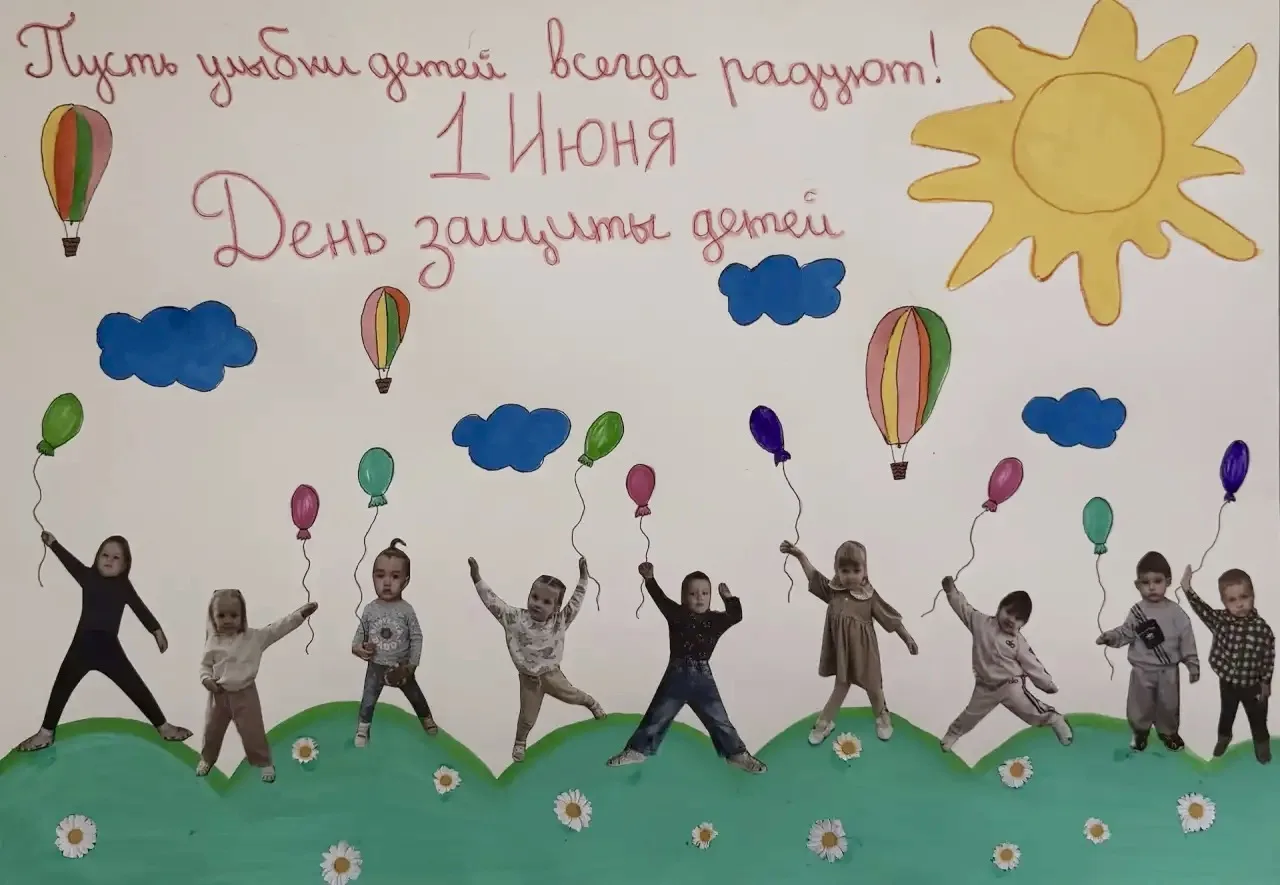 Пусть улыбки детей всегда радуют!
1 Июня
День защиты детей